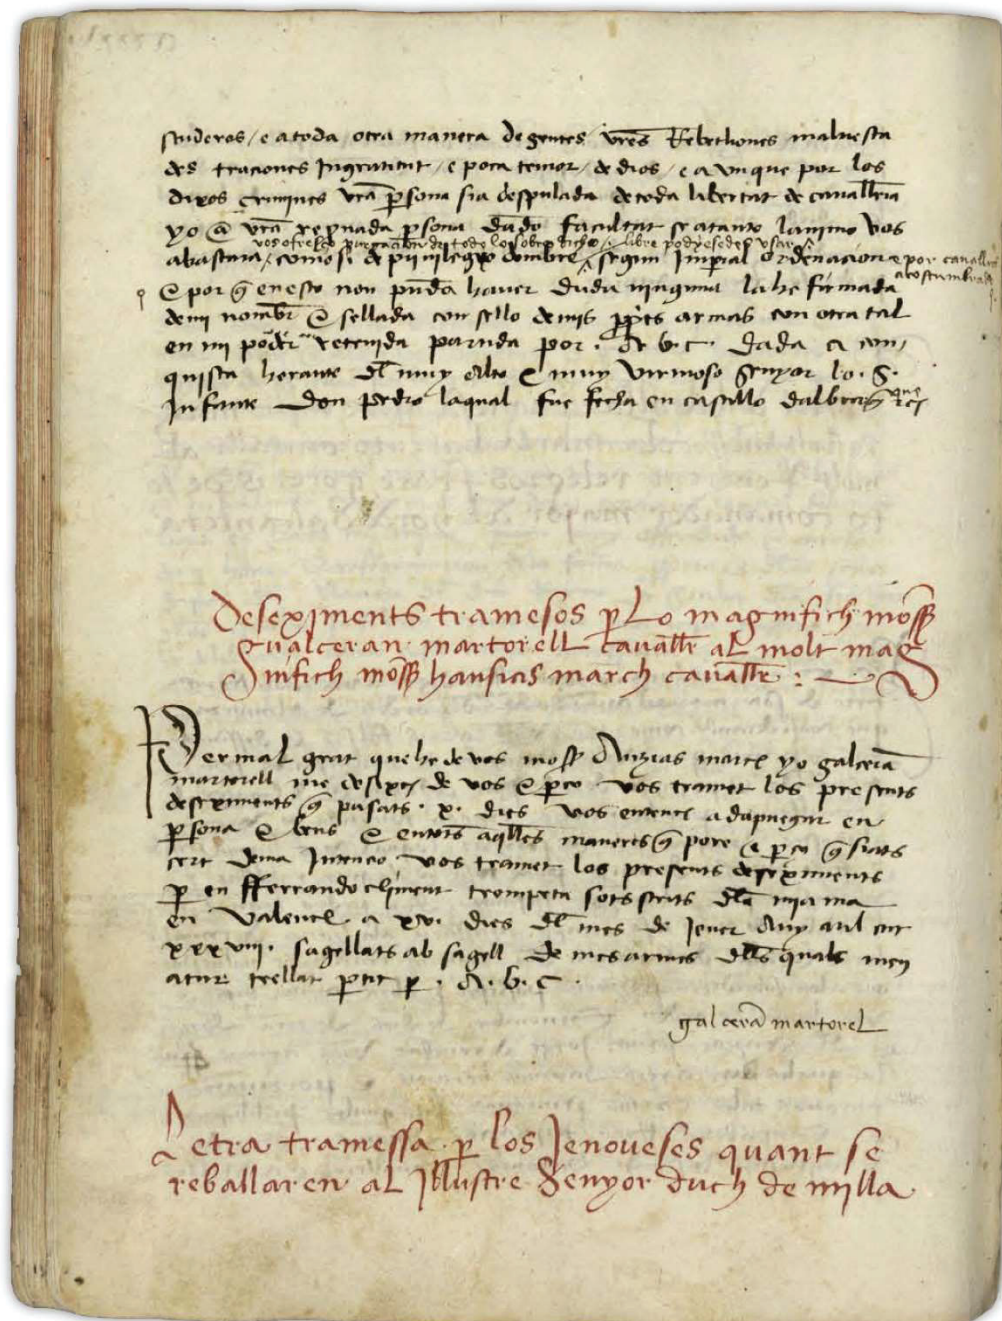 scuderos / e a toda / otra manera de gentes / vr̃es Rebelliones malvesta
des traciones Ingratitut / e poca temor / de dios / e a vnque por los
dixos crimines vr̃a p̱sona sia despulada de toda libertat de cavall̃ia
yo a vr̃a p̱sona dado facultat lanimo vos
vos ofresco purgacion de todo lo sobre dicho / libre podyese des vsar
abastara / como si de privilegio dombre / segun Imp̱ial Ordenacion e por cavalleria
acostumbrada
E por q̃ en esto non pueda haver duda ninguna la he firmada
de mi nombr̃ E sellada con sello de mis pp̱es armas con otra tal
en mi poder retenida partida por . A . b . c . dada a con
quista herante dl̃ muy Alto e muy virtuoso senyor lo . S .
Infante Don pedro laqual fue fecha en castillo dalbur
Deseximents tramesos p̱ Lo magnifich moss̃
gualceran martorell cavall̃r al molt mag
nifich moss̃ hausias march cavall̃r :
Per mal grat que he de vos moss̃ Auzias march yo galcerã
martorell me desixch de vos e p̱ço vos tramet los presents
desexments q̃ pasats . x . dies vos entench a dapnegar en
p̱sona e bens e en totes aq̃lles maneres q̃ pore e p̱ço q̃ siats
cert de ma Intencio vos tramet los presents deseximents
p̱ en fferrando climent trompeta sots scrits dl̃a mia ma
en Valencia a xv. dies dl̃ mes de Jener Any mil cccc
xxxviii. sagellats ab sagell de mes armes dl̃s quals men
atur trellat p̱tit p̱ . A . b . c .
galcerã martorel
Letra tramessa p̱ los Jenoveses quant se
reballaren al Jllustre Senyor duch de milla